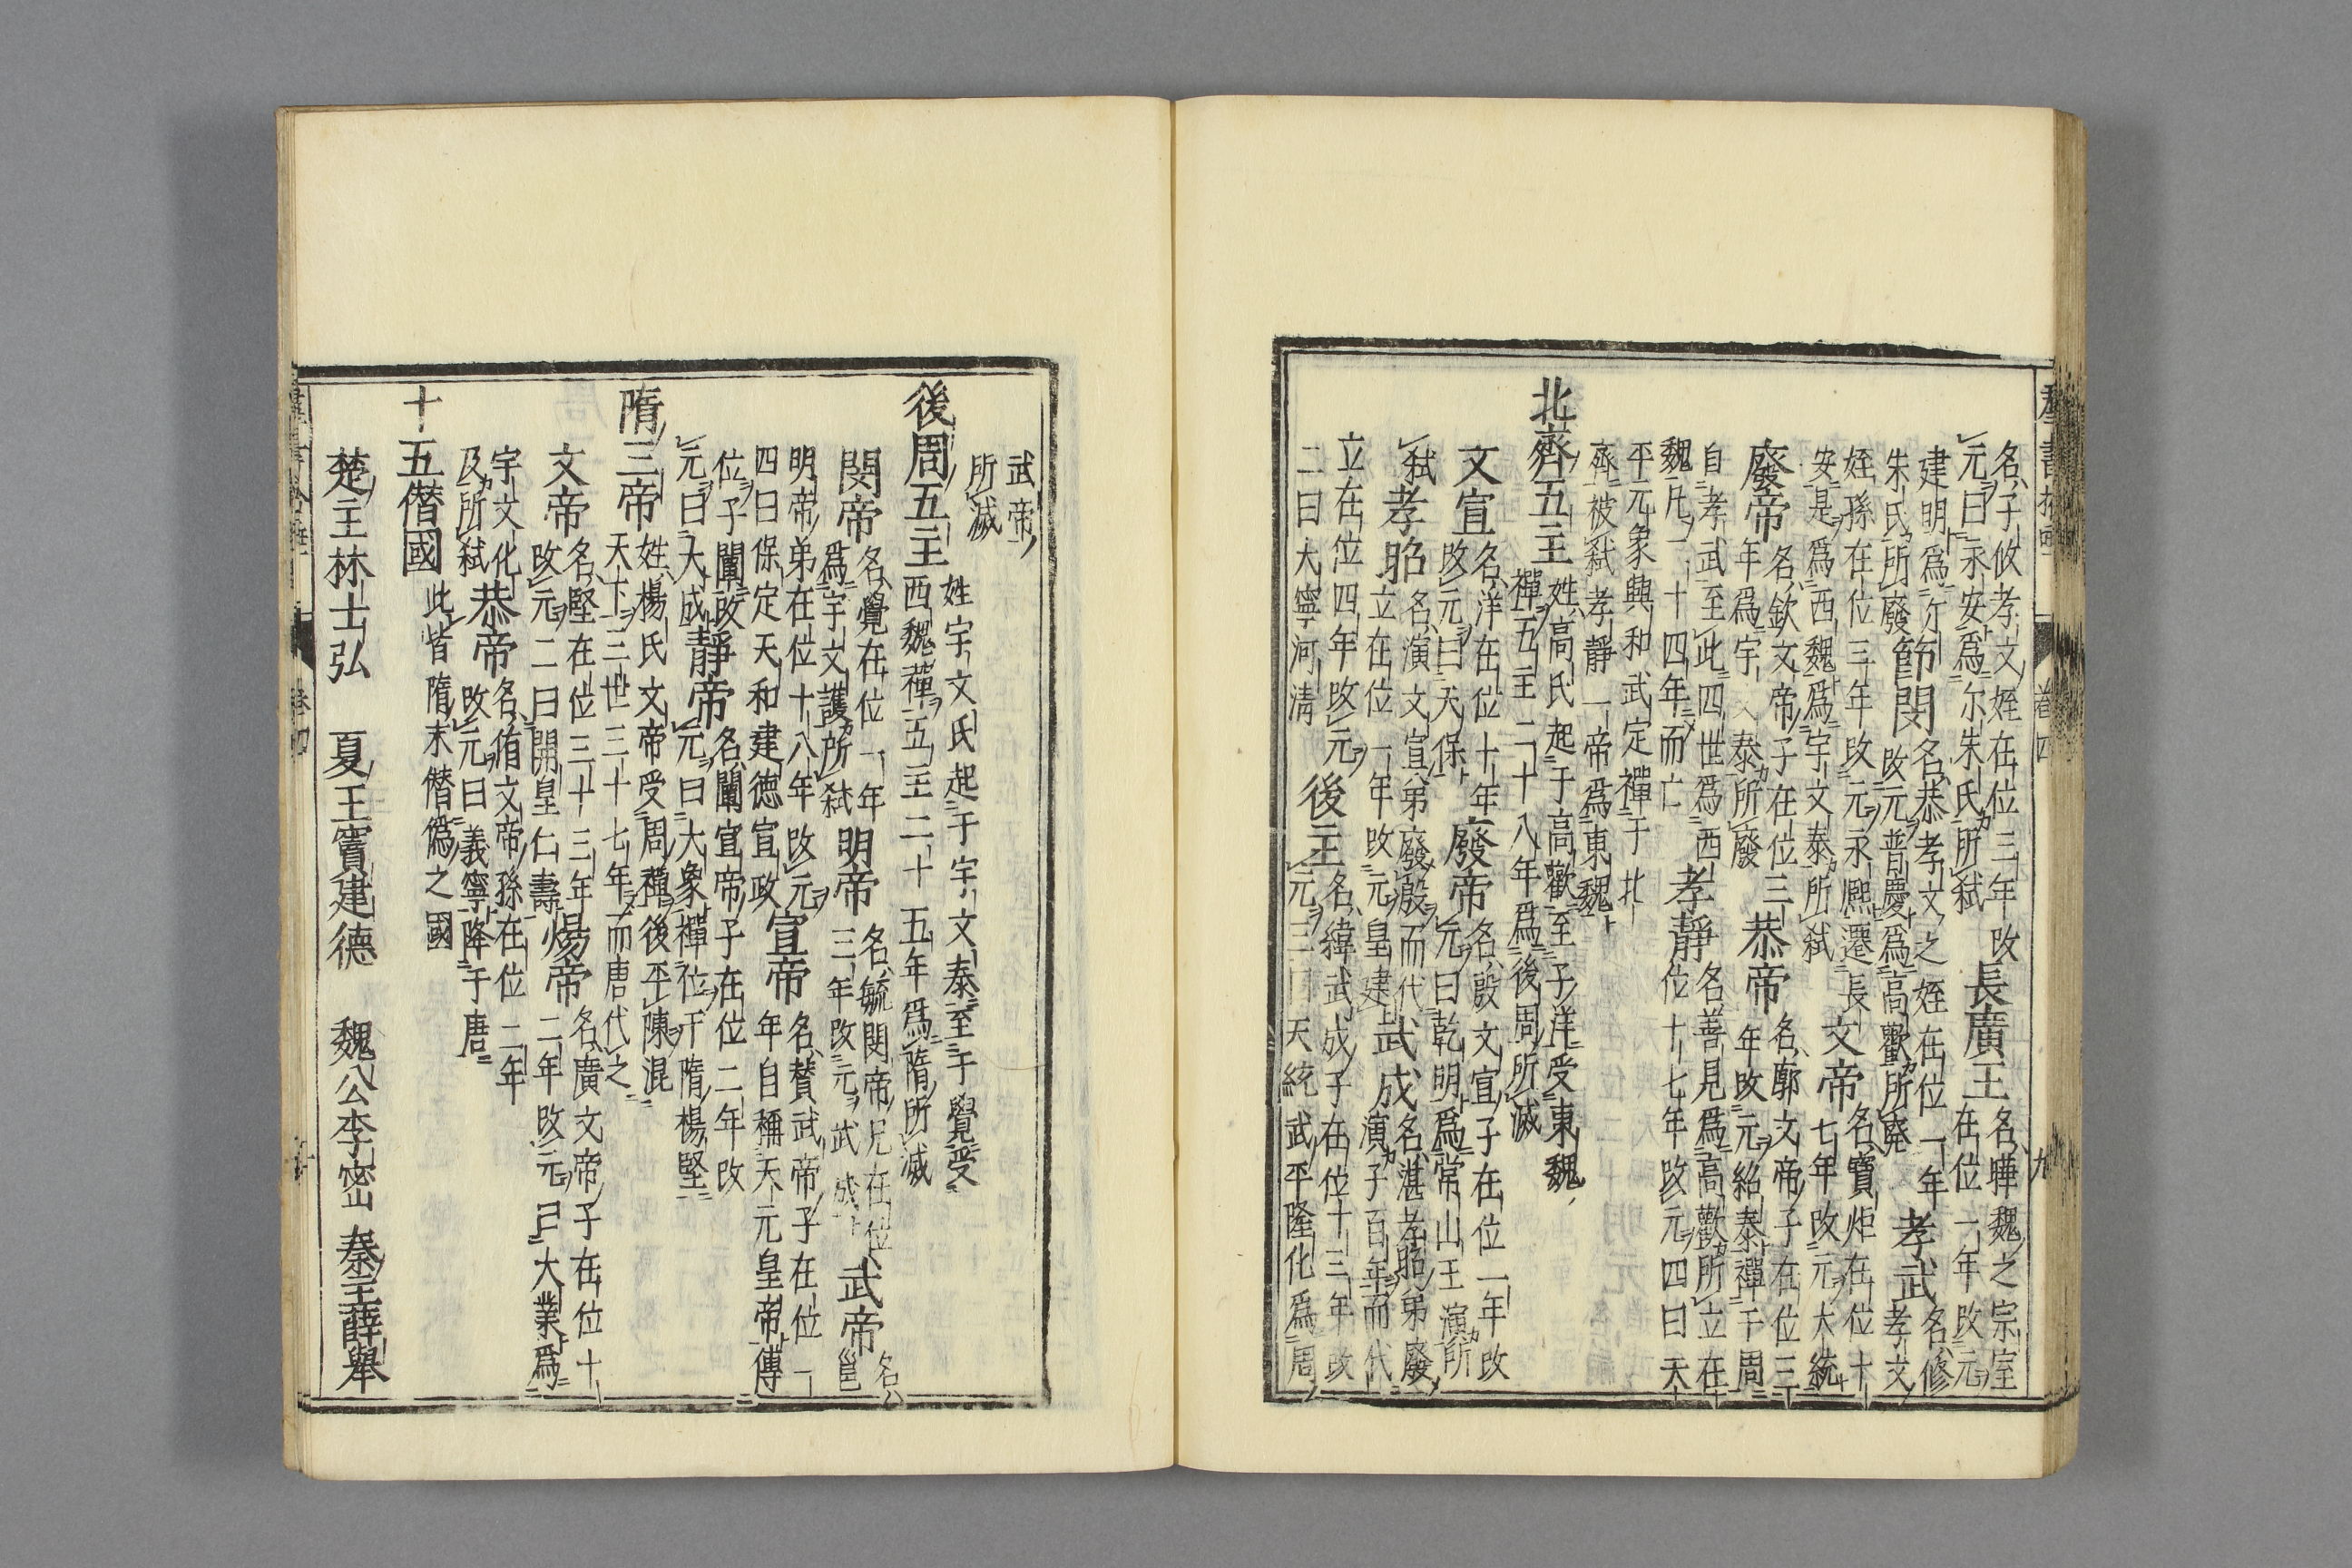 名子攸孝文姪在位三年改
元曰永安爲尒朱氏所弑
長廣王
名曄魏之宗室
在位一年改元
建明爲尒
朱氏所廢
節閔
名恭孝文之姪在位一年
改元普慶爲高歡所廃
孝武
名修
孝文
姪孫在位三年改元永熈遷長
安是爲西魏爲宇文泰所弑
文帝
名寶炬在位十
七年改元大統
廢帝
名欽文帝子在位三
年爲宇文泰所廢
恭帝
名廓文帝子在位三
年改元紹泰禪于周
自孝武至此四世爲西
魏凡二十四年而亡
孝靜
名善見爲高歡所立在
位十七年改元四曰天
平元象興和武定禪于北
齊被弑孝靜一帝爲東魏
北齊五主
姓高氏起于高歡至子洋受東魏
禪五主二十八年爲後周所滅
文宣
名洋在位十年
改元曰天保
廢帝
名殷文宣子在位一年改
元曰乾明爲常山王演所
弑
孝昭
名演文宣弟廢殷而代
立在位一年改元皇建
武成
名湛孝昭弟廢
演子百年而代
立在位四年改元
二曰大寧河清
後主
名緯武成子在位十三年改
元三曰天統武平隆化爲周
武帝
所滅
後周五主
姓宇文氏起于宇文泰至于覺受
西魏禪五主二十五年爲隋所滅
閔帝
名覺在位一年
爲宇文護所弑
明帝
名毓閔帝兄在位
三年改元武成
武帝
名
邕
明帝弟在位十八年改元
四曰保定天和建徳宣政
宣帝
名賛武帝子在位一
年自稱天元皇帝傳
位子闡改
元曰大成
靜帝
名闡宣帝子在位二年改
元曰大象禪位于隋楊堅
隋三帝
姓楊氏文帝受周禪後平陳混
天下三世三十七年而唐代之
文帝
名堅在位三十三年
改元二曰開皇仁壽
煬帝
名廣文帝子在位十
二年改元曰大業爲
宇文化
及所弑
恭帝
名侑文帝孫在位二年
改元曰義寧降于唐
十五僭國
此皆隋末僭僞之國
楚王林士弘　夏王竇建德　魏公李密　秦王薛舉
卷四
九